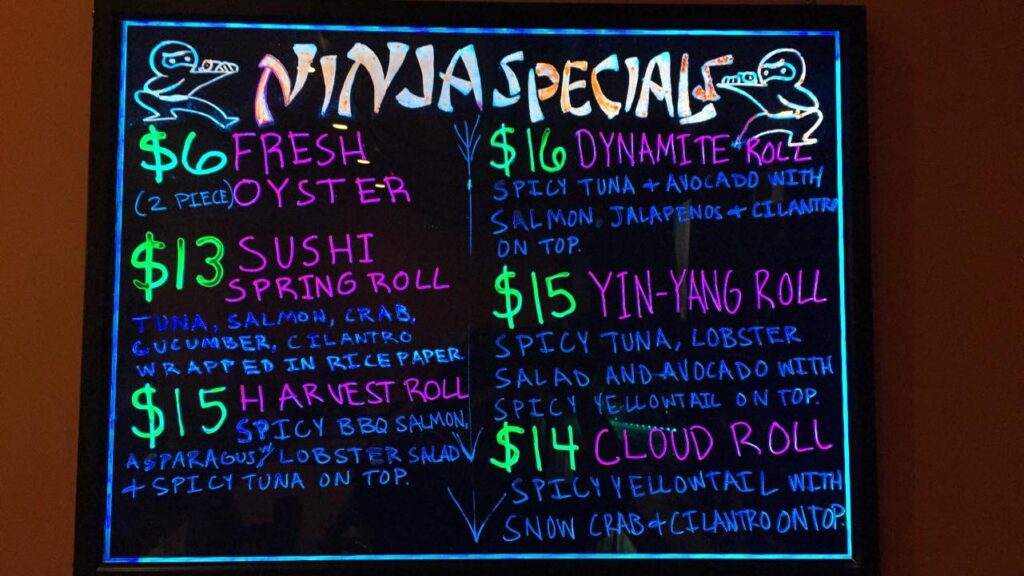 NINJA SPECIALS
$6 FRESH
(2 PIECE) OYSTER
$13 SUSHI
SPRING ROLL
TUNA, SALMON, CRAB,
CUCUMBER, CILANTRO
WRAPPED IN RICE PAPER
$15 HARVEST ROLL
SPICY BBQ SALMON,
ASPARAGUS W/ LOBSTER SALAD
+ SPICY TUNA ON TOP.
$16 DYNAMITE ROLL
SPICY TUNA + AVOCADO WITH
SALMON, JALAPENOS + CILANTRO
ON TOP.
$15 YIN-YANG ROLL
SPICY TUNA, LOBSTER
SALAD AND AVOCADO WITH
SPICY YELLOWTAIL ON TOP.
$14 CLOUD ROLL
SPICY YELLOWTAIL WITH
SNOW CRAB + CILANTRO ON TOP.